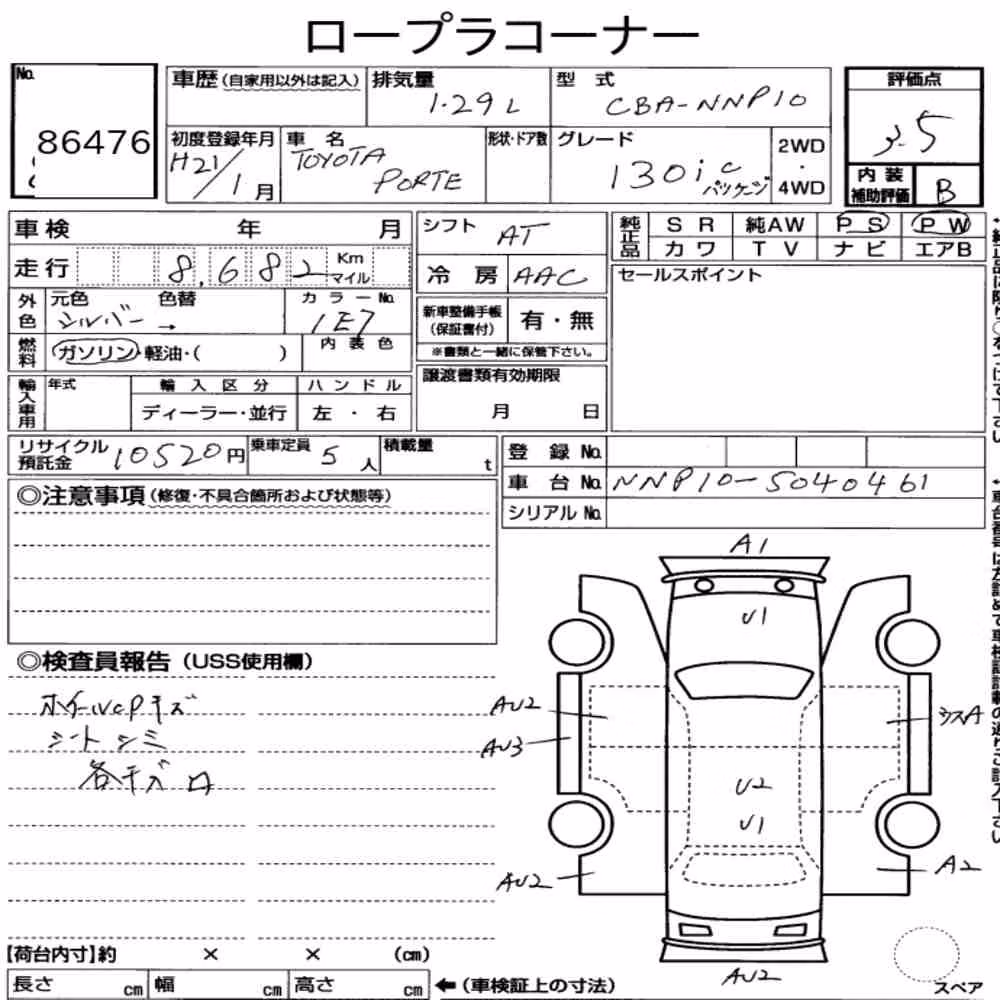 ロープラコーナー
No.
86476
車歴 (自家用以外は記入)
排気量
1.29L
型式
CBA-NNP10
評価点
3.5
初度登録年月
H21/1月
車名
TOYOTA
PORTE
形状・ドア数
グレード
130i C
パッケージ
2WD
・
4WD
内装
補助評価
B
車検 年 月
走行 8,682 Km
マイル
シフト AT
冷房 AAC
純正品
SR 純AW PS PW
カワ TV ナビ エアB
セールスポイント
外色
元色 色替
シルバー →
カラーNo.
1E7
新車整備手帳
(保証書付)
有・無
※書類と一緒に保管下さい。
燃料
ガソリン・軽油・( )
内装色
譲渡書類有効期限
月 日
輸入車用
年式
輸入区分
ディーラー・並行
ハンドル
左・右
リサイクル
預託金
10520円
乗車定員
5人
積載量
t
登録No.
車台No. NNP10-5040461
シリアルNo.
◎注意事項 (修復・不具合箇所および状態等)
◎検査員報告 (USS使用欄)
ホイールcPキズ
シートシミ
各キズロ
A1
U1
AU2
AU3
U2
U1
AU2
A2
AU2
スペア
【荷台内寸】約 × × (cm)
長さ cm 幅 cm 高さ cm ←(車検証上の寸法)